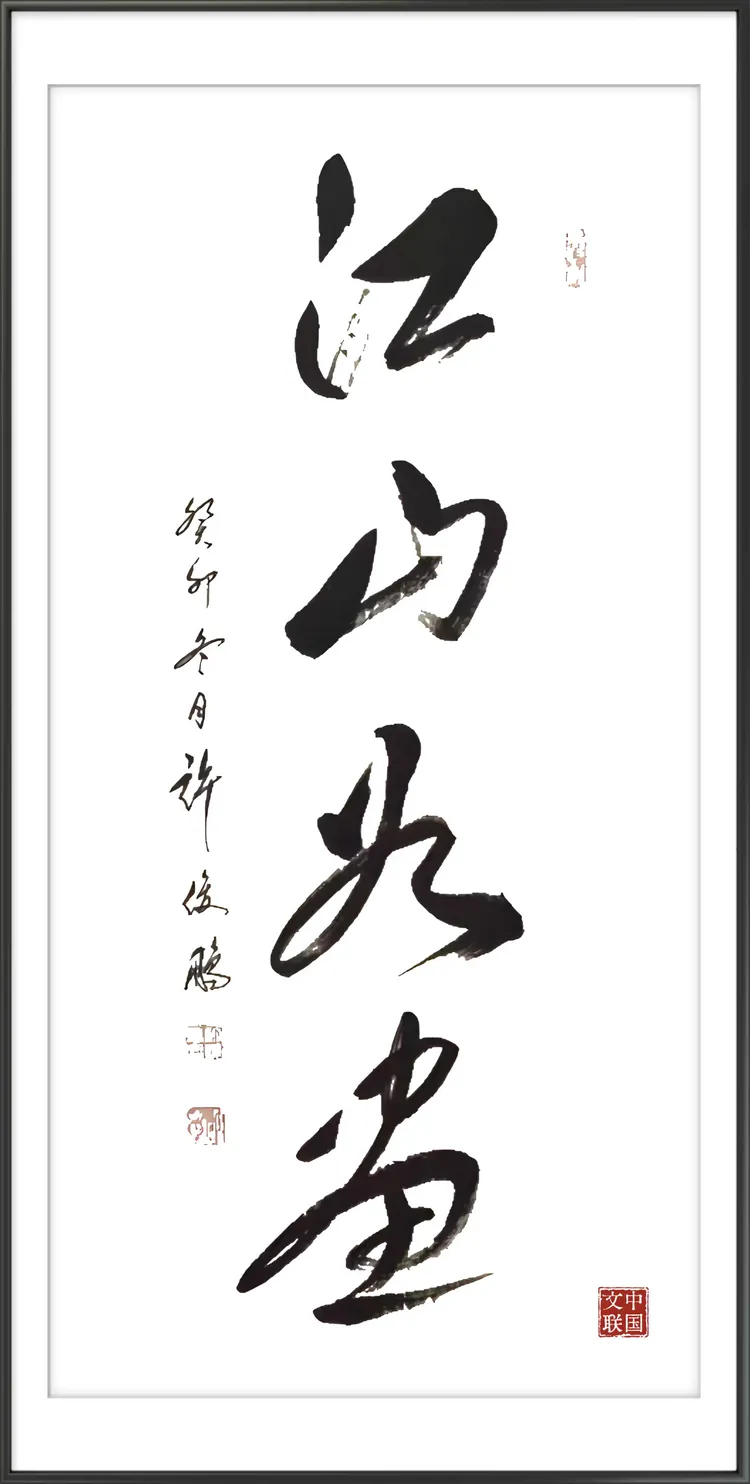 江山如画
癸卯冬月许俊鹏
中国文联